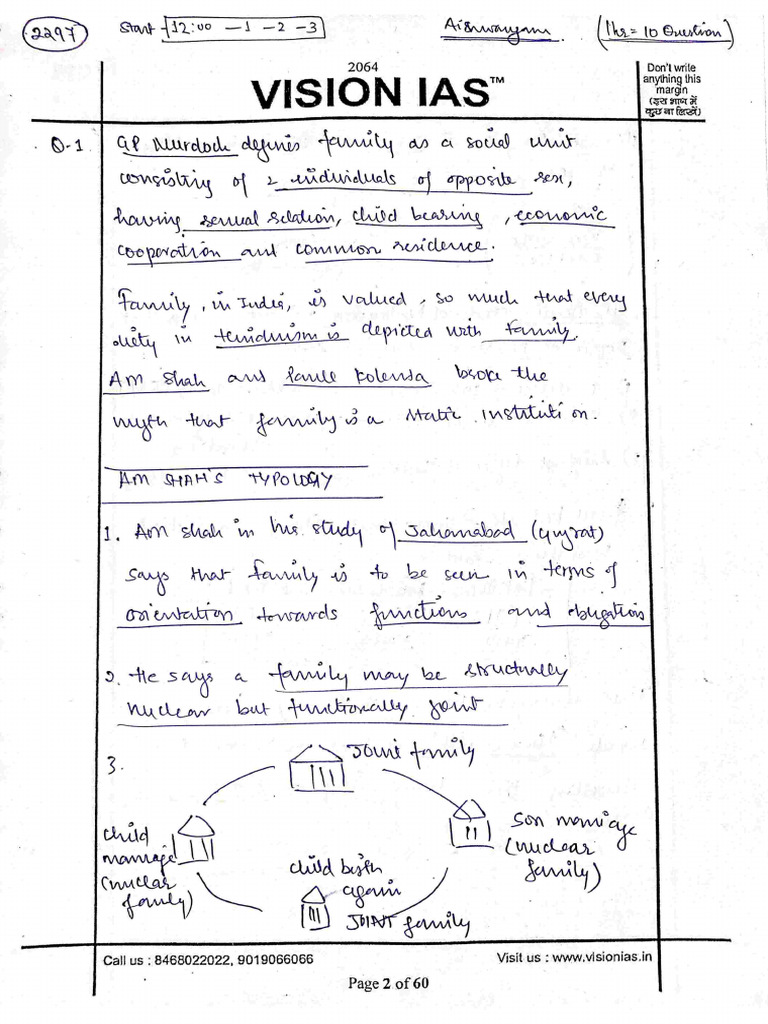 2297
Start 12:00 — 1 — 2 — 3
Aishwaryam
(1hr = 10 Question)
2064
VISION IAS™
Don't write
anything this
margin
(इस भाग में
कुछ ना लिखें)
Q-1 GP Murdock defines family as a social unit
consisting of 2 individuals of opposite sex,
having sexual relation, child bearing, economic
cooperation and common residence.
Family, in India, is valued, so much that every
diety in Hinduism is depicted with family.
AM Shah and Paule Kolenda broke the
myth that family is a static institution.
AM SHAH'S TYPOLOGY
1. AM Shah in his study of Jahanabad (Gujrat)
says that family is to be seen in terms of
orientation towards functions, and obligation
2. He says a family may be structurally
nuclear but functionally joint
3.
Joint family
Son marriage
(nuclear
family)
child birth
again
JOINT family
Child
marriage
(nuclear
family)
Call us : 8468022022, 9019066066
Visit us : www.visionias.in
Page 2 of 60